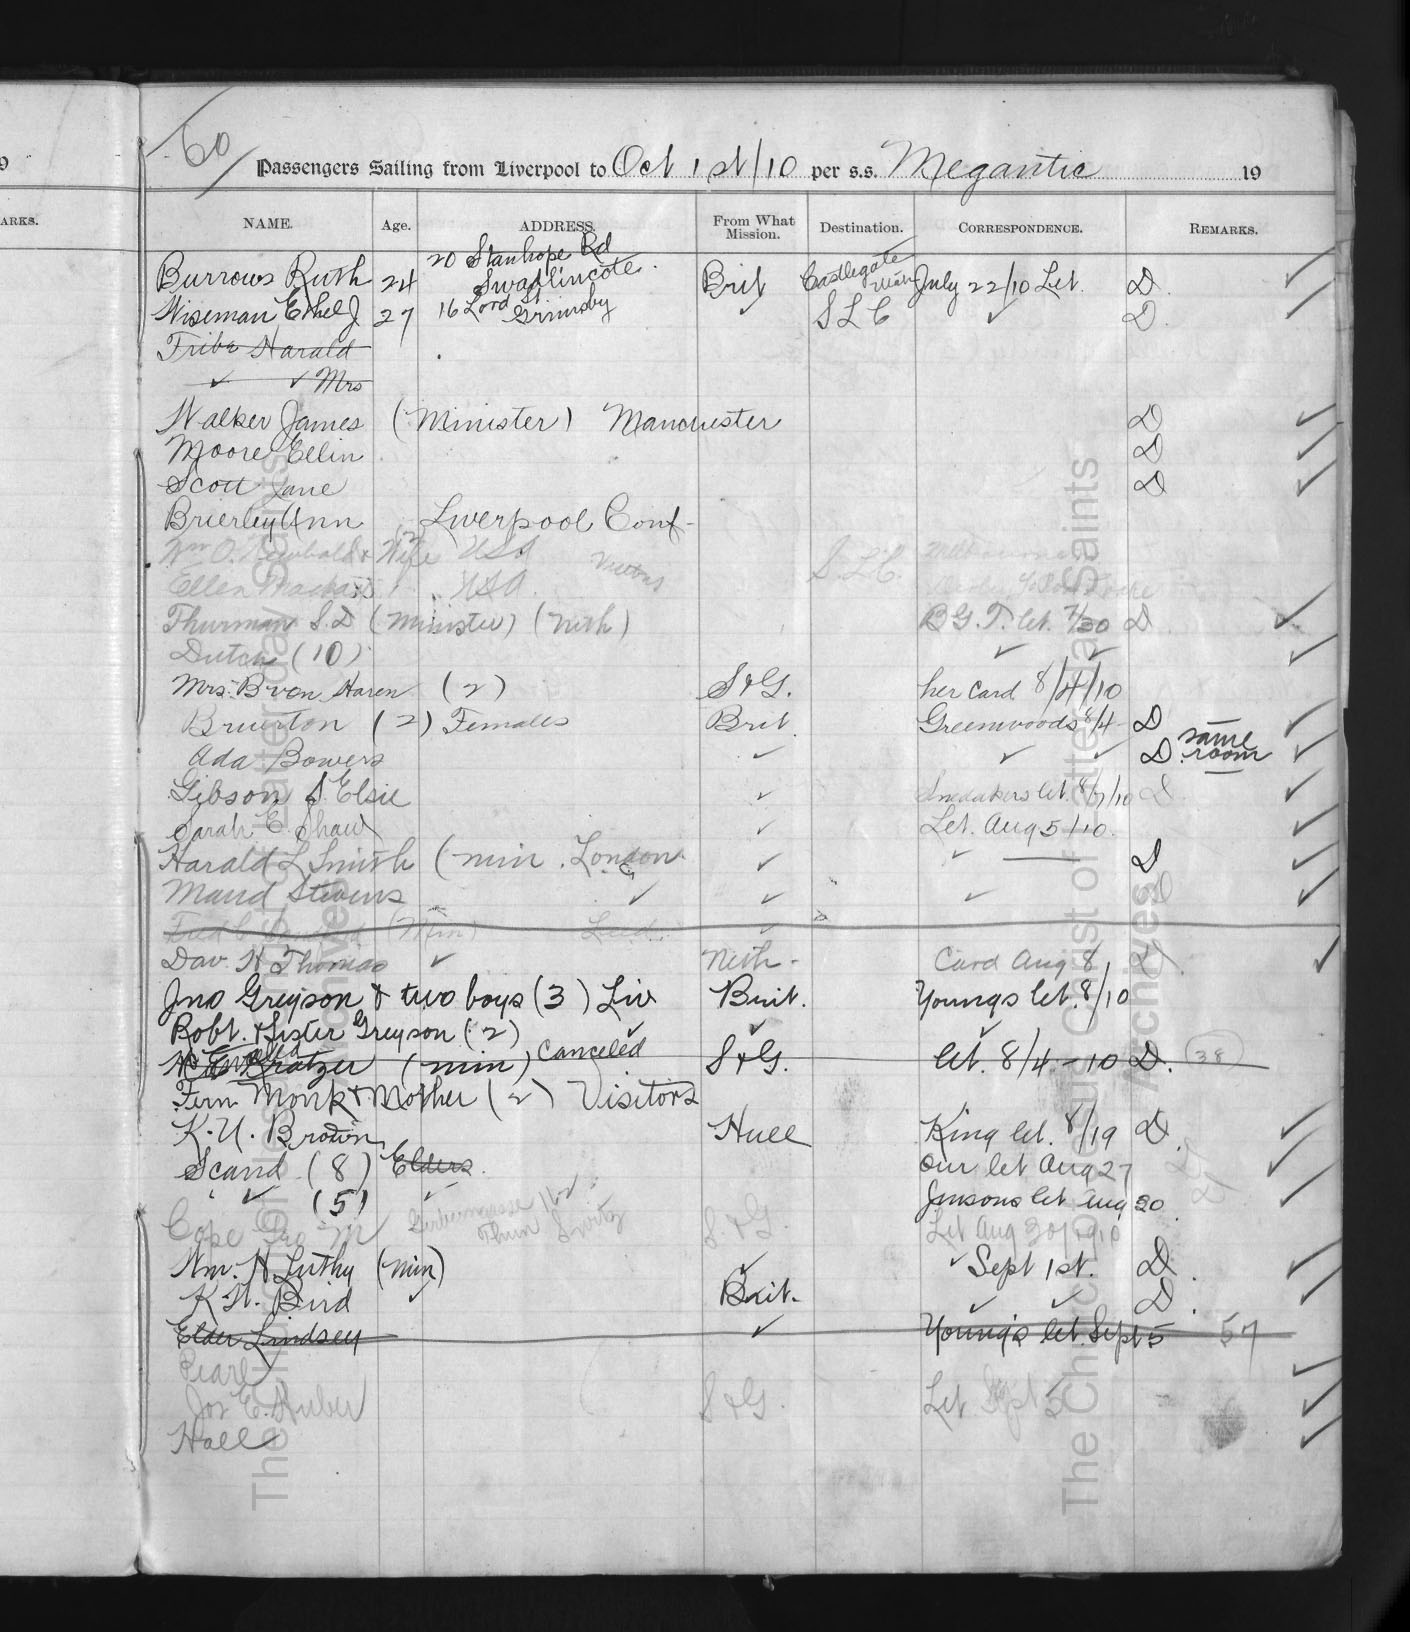 60
Passengers Sailing from Liverpool to Oct 1st/10 per s.s. Megantic 19
9
ARKS.
NAME. Age. ADDRESS. From What Mission. Destination. CORRESPONDENCE. REMARKS.
Burrows Ruth 24 20 Stanhope Rd Swadlincote. Brit Castlegate Utah July 22/10 Let. D. ✓
Wiseman Ethel J 27 16 Lord St Grimsby ✓ S L C ✓ D. ✓
Tribe Harald
✓ ✓ Mrs
Walker James (Minister) Manchester D ✓
Moore Ellin D ✓
Scott Jane D ✓
Brierley Ann Liverpool Conf-
Wm O. & Wife USA S.L.C.
Ellen USA.
Thurman S.D (Minister) (Neth) B.G.T. let. 7/30 D ✓
Dutch (10) ✓ ✓ ✓
Mrs. B von Haren (2) S&G. her card 8/4/10
Bruerton (2) Females Brit. Greenwoods 8/4 D ✓
Ada Bowers ✓ ✓ ✓ D. same room ✓
Gibson S. Elsie ✓ let. 8/ /10 D ✓
Sarah E. Shaw ✓ Let. Aug 5/10. ✓
Harald L Smith (min. London ✓ ✓ D ✓
Maud Stevens ✓ ✓ ✓ D ✓
Fred (Min) Leed. ✓
Dav. H Thomas ✓ Neth- Card Aug 8 D. ✓
Jno Greyson & two boys (3) Liv Brit. Youngs let. 8/10
Robt. & Sister Greyson (2) ✓ ✓ ✓
Kratzer (min) Canceled S&G. let. 8/4-10 D. (38)
Fern Monk & Mother (2) Visitors
K. U. Brown Hull King let. 8/19 D. ✓
Scand (8) Elders. Our let Aug 27 ✓
" ✓ (5) ✓ Jensons let Aug 30. ✓
Cope Geo M Thun S.&G. Let Aug 30/1910
Wm. H Luthy (min) ✓ ✓ Sept 1st. D. ✓
K W. Bird ✓ Brit. ✓ ✓ D. ✓
Elder Lindsey ✓ Young's let. Sept 5 57
Pearl ✓
Jos E. Huber S&G. Let Sept 5 ✓
Hall ✓
The Church of Jesus Christ of Latter-day Saints
Archives